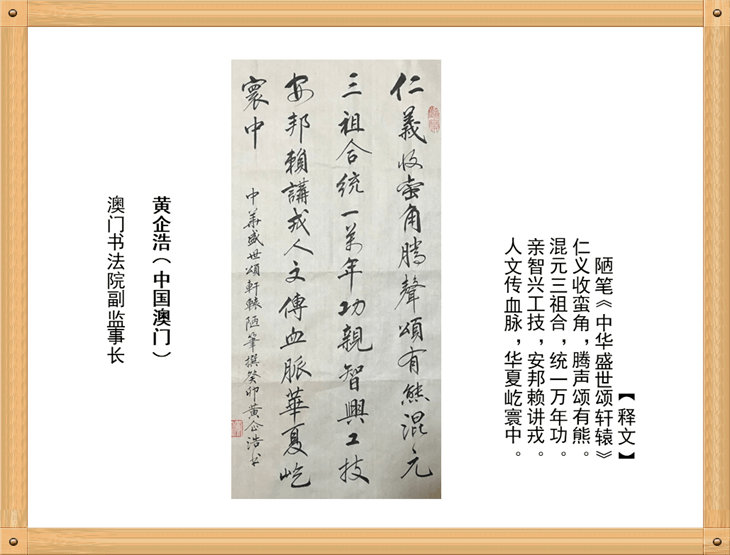 【释文】
陋笔《中华盛世颂轩辕》
仁义收蛮角，腾声颂有熊。
混元三祖合，统一万年功。
亲智兴工技，安邦赖讲戎。
人文传血脉，华夏屹寰中。
仁義收蛮角騰聲頌有熊混元
三祖合统一萬年功親智興工技
安邦賴講戎人文傳血脈華夏屹
寰中
中華盛世頌軒轅陋筆撰癸卯黄企浩书
黄企浩（中国澳门）
澳门书法院副监事长